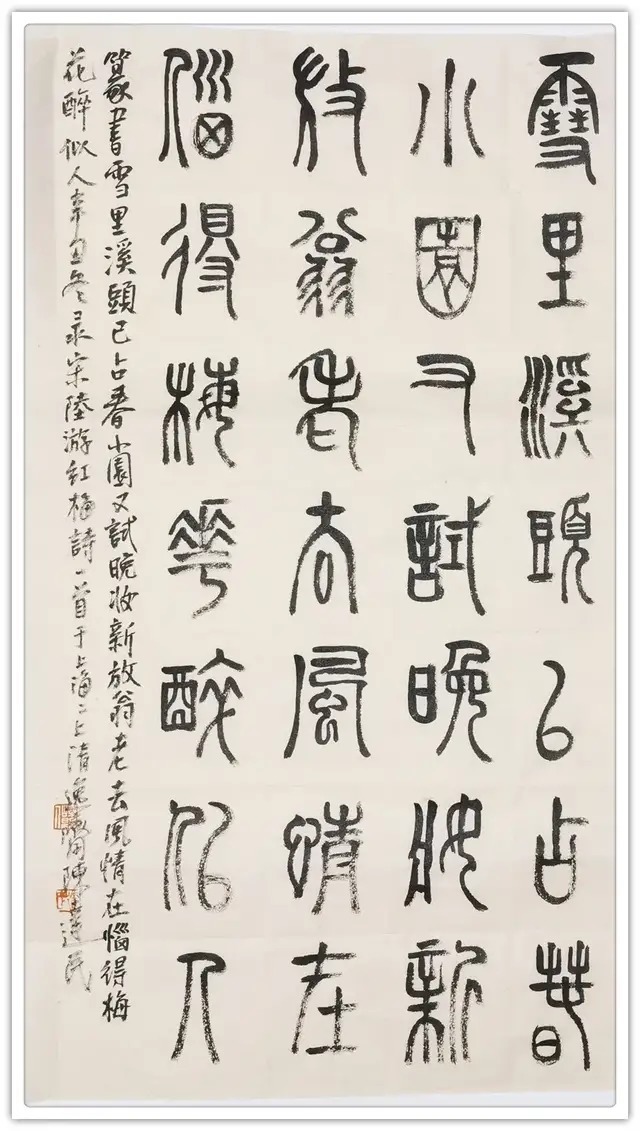 雪里溪頭已占春
小園又試晚妝新
放翁老去風情在
惱得梅華醉似人
篆書雪里溪頭已占春小園又試晚妝新放翁老去風情在惱得梅
花醉似人辛丑冬录宋陸游紅梅詩一首于上海上清逸齋陳民